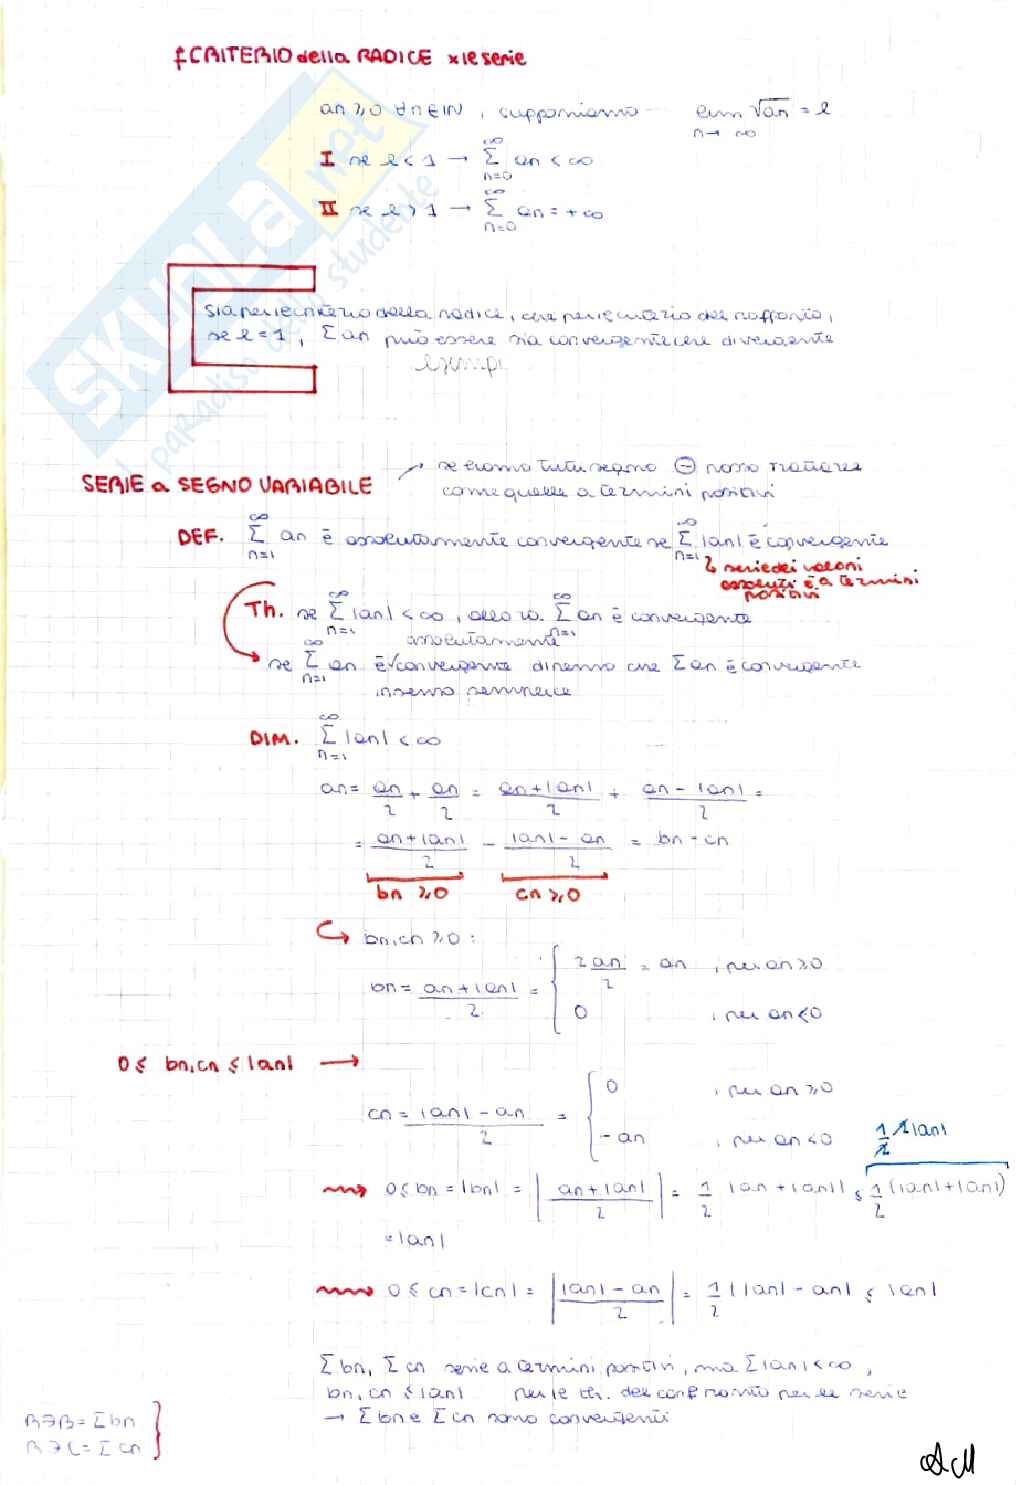 CRITERIO della RADICE x le serie
an ≥ 0 ∀n∈IN, supponiamo lim √an = l
n→∞
I se l < 1 → ∞Σn=0 an < ∞
II se l > 1 → ∞Σn=0 an = +∞
sia per il criterio della radice, che per il criterio del rapporto,
se l = 1, Σan può essere sia convergente che divergente
SKUOLA.net
il paradiso dello studente
SERIE a SEGNO VARIABILE
se erano tutti segno ⊖ posso trattarla
come quelle a termini positivi
DEF. ∞Σn=1 an è assolutamente convergente se ∞Σn=1 |an| è convergente
serie dei valori
assoluti è a termini
positivi
Th. se ∞Σn=1 |an| < ∞, allora ∞Σn=1 an è convergente
assolutamente
se ∞Σn=1 an è convergente diremo che Σan è convergente
in senso semplice
DIM. ∞Σn=1 |an| < ∞
an = an/2 + an/2 = an+|an|/2 + an-|an|/2 =
= an+|an|/2 - |an|-an/2 = bn - cn
bn ≥ 0 cn ≥ 0
bn, cn ≥ 0:
bn = an+|an|/2 = { 2an/2 = an , per an ≥ 0
0 , per an < 0
0 ≤ bn, cn ≤ |an| →
cn = |an|-an/2 = { 0 , per an ≥ 0
-an , per an < 0
1/2 2|an|
0 ≤ bn = |bn| = |an+|an|/2| = 1/2 |an+|an|| ≤ 1/2 (|an|+|an|)
= |an|
0 ≤ cn = |cn| = ||an|-an/2| = 1/2 ||an|-an| ≤ |an|
Σbn, Σcn serie a termini positivi, ma Σ|an| < ∞,
bn, cn ≤ |an| per il th. del confronto per le serie
→ Σbn e Σcn sono convergenti
R∋B = Σbn
R∋C = Σcn
AM